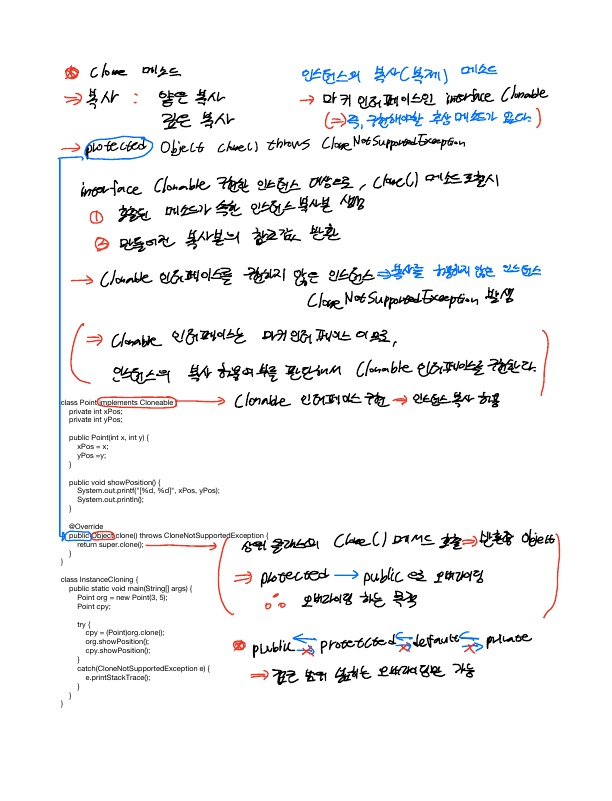 * Clone 메소드
인스턴스의 복사(복제) 메소드
⇒ 복사 : 얕은 복사
깊은 복사
→ 마커 인터페이스인 interface Clonable
(⇒ 즉, 구현해야할 추상 메소드가 없다.)
→ protected Object clone() throws CloneNotSupportedException
interface Clonable 구현한 인스턴스 대상으로, clone() 메소드 호출시
① 호출된 메소드가 속한 인스턴스 복사본 생성
② 만들어진 복사본의 참조값 반환
→ Clonable 인터페이스를 구현하지 않은 인스턴스 ⇒ 복사를 허용하지 않은 인스턴스
CloneNotSupportedException 발생
⇒ Clonable 인터페이스는 마커 인터페이스 이므로,
인스턴스의 복사 허용여부를 판단해서 Clonable 인터페이스를 구현한다.
class Point implements Cloneable {
→ Clonable 인터페이스 구현 → 인스턴스 복사 허용
private int xPos;
private int yPos;
public Point(int x, int y) {
xPos = x;
yPos =y;
}
public void showPosition() {
System.out.printf("[%d, %d]", xPos, yPos);
System.out.println();
}
@Override
public Object clone() throws CloneNotSupportedException {
return super.clone();
}
}
→ 상위 클래스의 Clone() 메서드 호출 ⇒ 반환형 Object
⇒ protected → public 으로 오버라이딩
∴ 오버라이딩 하는 목적
class InstanceCloning {
public static void main(String[] args) {
Point org = new Point(3, 5);
Point cpy;
try {
cpy = (Point)org.clone();
org.showPosition();
cpy.showPosition();
}
catch(CloneNotSupportedException e) {
e.printStackTrace();
}
}
}
* public protected default private
⇒ 접근 범위 넓히는 오버라이딩만 가능